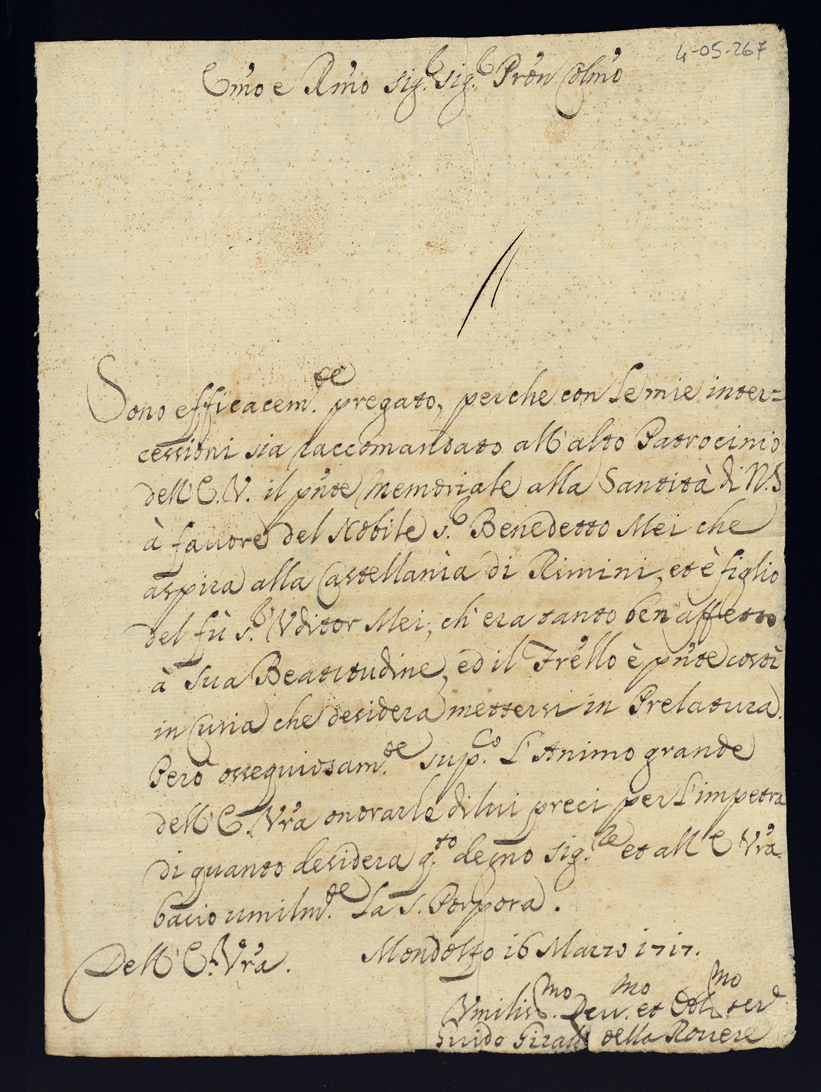 4-05-267
Em̃o e Rm̃o Sig.r Sig.r Prõn Colm̃o
Sono efficacem.te pregato, perche con le mie inter=
cessioni sia raccomandato all'alto Patrocinio
dell'E.V. il pñte Memoriale alla Santità di N.S
à fauore del Nobile s.r Benedetto Mei che
aspira alla Castellania di Rimini, et è figlio
del fù s.r Vditor Mei, ch'era tanto ben affetto
à Sua Beatitudine, ed il Frẽllo è pñte costi
in Curia che desidera mettersi in Prelatura.
Però ossequiosam.te sup.co L'Animo grande
dell'E. Vrã onorarle di lui preci per l'impetra
di quanto desidera q.to degno Sig.re et all'E Vrã
bacio umilm.te La S. Porpora.
Mondolfo 16 Marzo 1717.
Dell'E. Vrã.
Vmilis.mo Deu.mo et Obl.mo ser.
Guido della Rouere